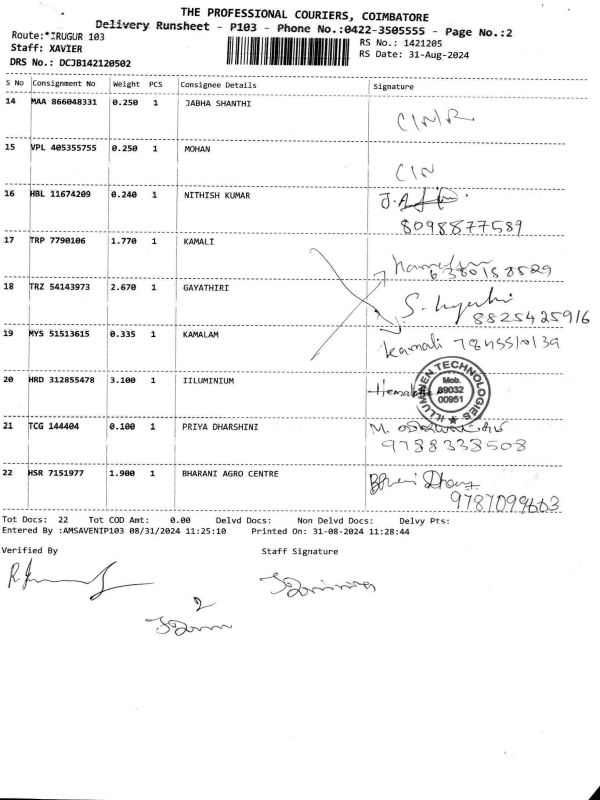 THE PROFESSIONAL COURIERS, COIMBATORE
Delivery Runsheet - P103 - Phone No.:0422-3505555 - Page No.:2
Route:*IRUGUR 103
RS No.: 1421205
Staff: XAVIER
RS Date: 31-Aug-2024
DRS No.: DCJB142120502
S No Consignment No Weight PCS Consignee Details Signature
14 MAA 866048331 0.250 1 JABHA SHANTHI
15 VPL 405355755 0.250 1 MOHAN
CIN
16 HBL 11674209 0.240 1 NITHISH KUMAR
8098877589
17 TRP 7790106 1.770 1 KAMALI
6380158529
18 TRZ 54143973 2.670 1 GAYATHIRI
8825425916
19 MYS 51513615 0.335 1 KAMALAM
Kamali
20 HRD 312855478 3.100 1 IILUMINIUM
ILLUMINEN TECHNOLOGIES
Mob.
89032
00951
21 TCG 144404 0.100 1 PRIYA DHARSHINI
M.
9788338508
22 HSR 7151977 1.900 1 BHARANI AGRO CENTRE
9787099663
Tot Docs: 22 Tot COD Amt: 0.00 Delvd Docs: Non Delvd Docs: Delvy Pts:
Entered By :AMSAVENIP103 08/31/2024 11:25:10 Printed On: 31-08-2024 11:28:44
Verified By Staff Signature